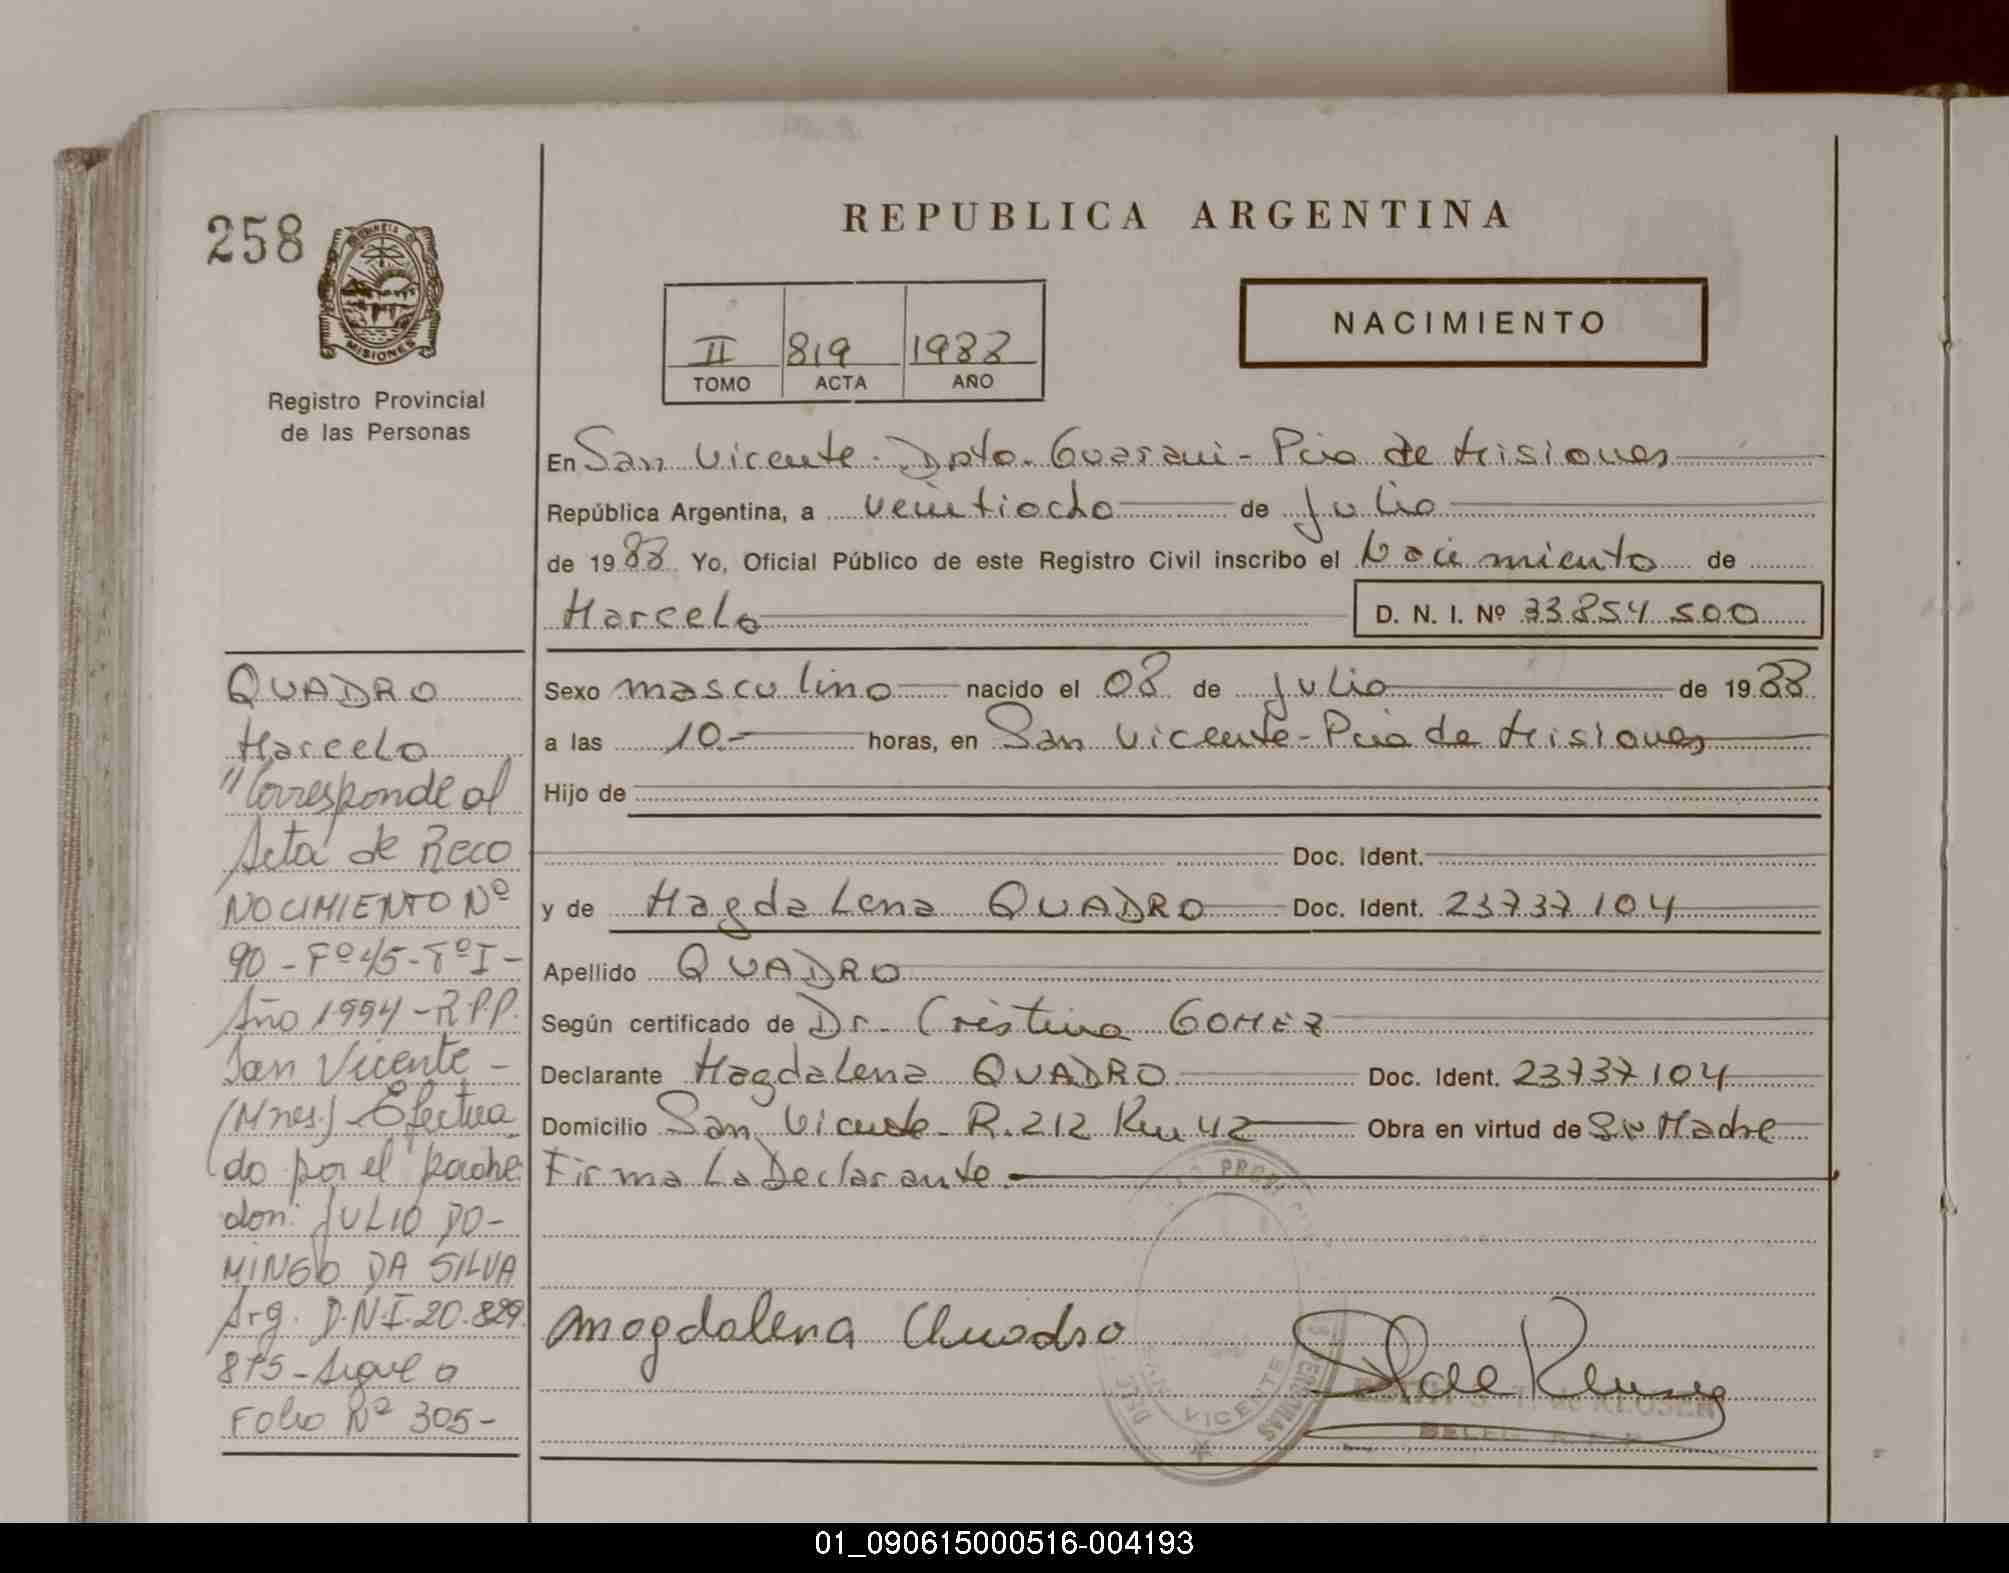 258
MISIONES
Registro Provincial
de las Personas
REPUBLICA ARGENTINA
II 819 1988
TOMO ACTA AÑO
NACIMIENTO
En San Vicente - Dpto. Guarani - Pcia de Misiones
República Argentina, a veintiocho de Julio
de 1988 Yo, Oficial Público de este Registro Civil inscribo el Nacimiento de
Marcelo D. N. I. Nº 33.854.500
Sexo masculino nacido el 08 de Julio de 1988
a las 10.- horas, en San Vicente - Pcia de Misiones
Hijo de
Doc. Ident.
y de Magdalena QUADRO Doc. Ident. 23737104
Apellido QUADRO
Según certificado de Dr. Cristina GOMEZ
Declarante Magdalena QUADRO Doc. Ident. 23737104
Domicilio San Vicente - R. 212 Km 42 Obra en virtud de Su Madre
Firma La Declarante.
Magdalena Cuadro
VICENTE
QUADRO
Marcelo
"Corresponde al
Acta de Reco
NOCIMIENTO Nº
90 - Fº 45 - Tº I -
Año 1994 - R.P.P.
San Vicente -
(Mnes.) - Efectua
do por el padre
don: JULIO DO-
MINGO DA SILVA
Arg. D.N.I. 20.829.
875 - Sigue a
Folio Nº 305 -
01_090615000516-004193